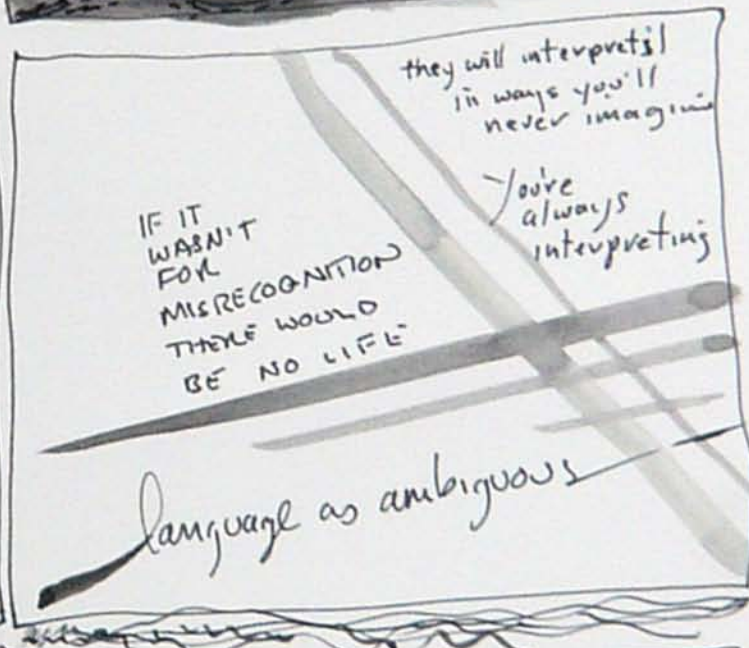 they will interpret it
in ways you'll
never imagine
you're
always
interpreting
IF IT
WASN'T
FOR
MISRECOGNITION
THERE WOULD
BE NO LIFE
language as ambiguous